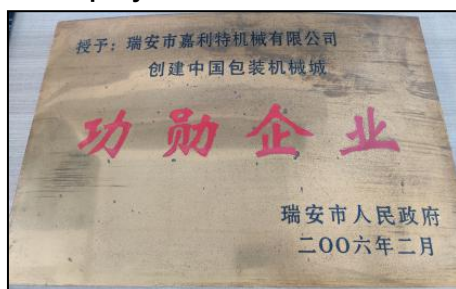 授予：瑞安市嘉利特机械有限公司
创建中国包装机械城
功勋企业
瑞安市人民政府
二〇〇六年二月